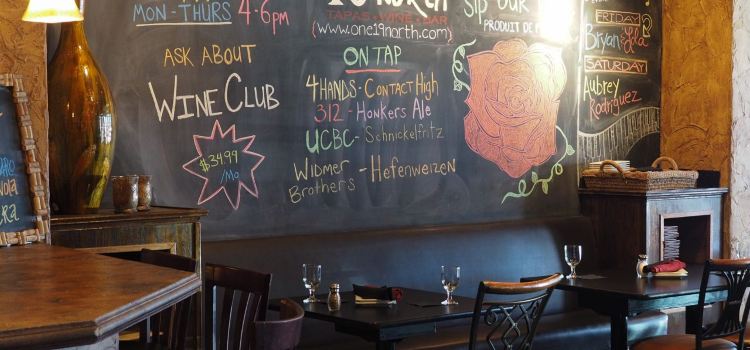 MON - THURS 4-6pm
19 NORTH
TAPAS • WINE • BAR
(www.one19north.com)
SIP OUR
PRODUIT DE
FRIDAY
Bryan
Lola
SATURDAY
Aubrey
Rodriguez
ASK ABOUT
WINE CLUB
$34.99
/Mo
ON TAP
4 HANDS - CONTACT HIGH
312 - HONKERS ALE
UCBC - SCHNICKELFRITZ
WIDMER BROTHERS - HEFENWEIZEN